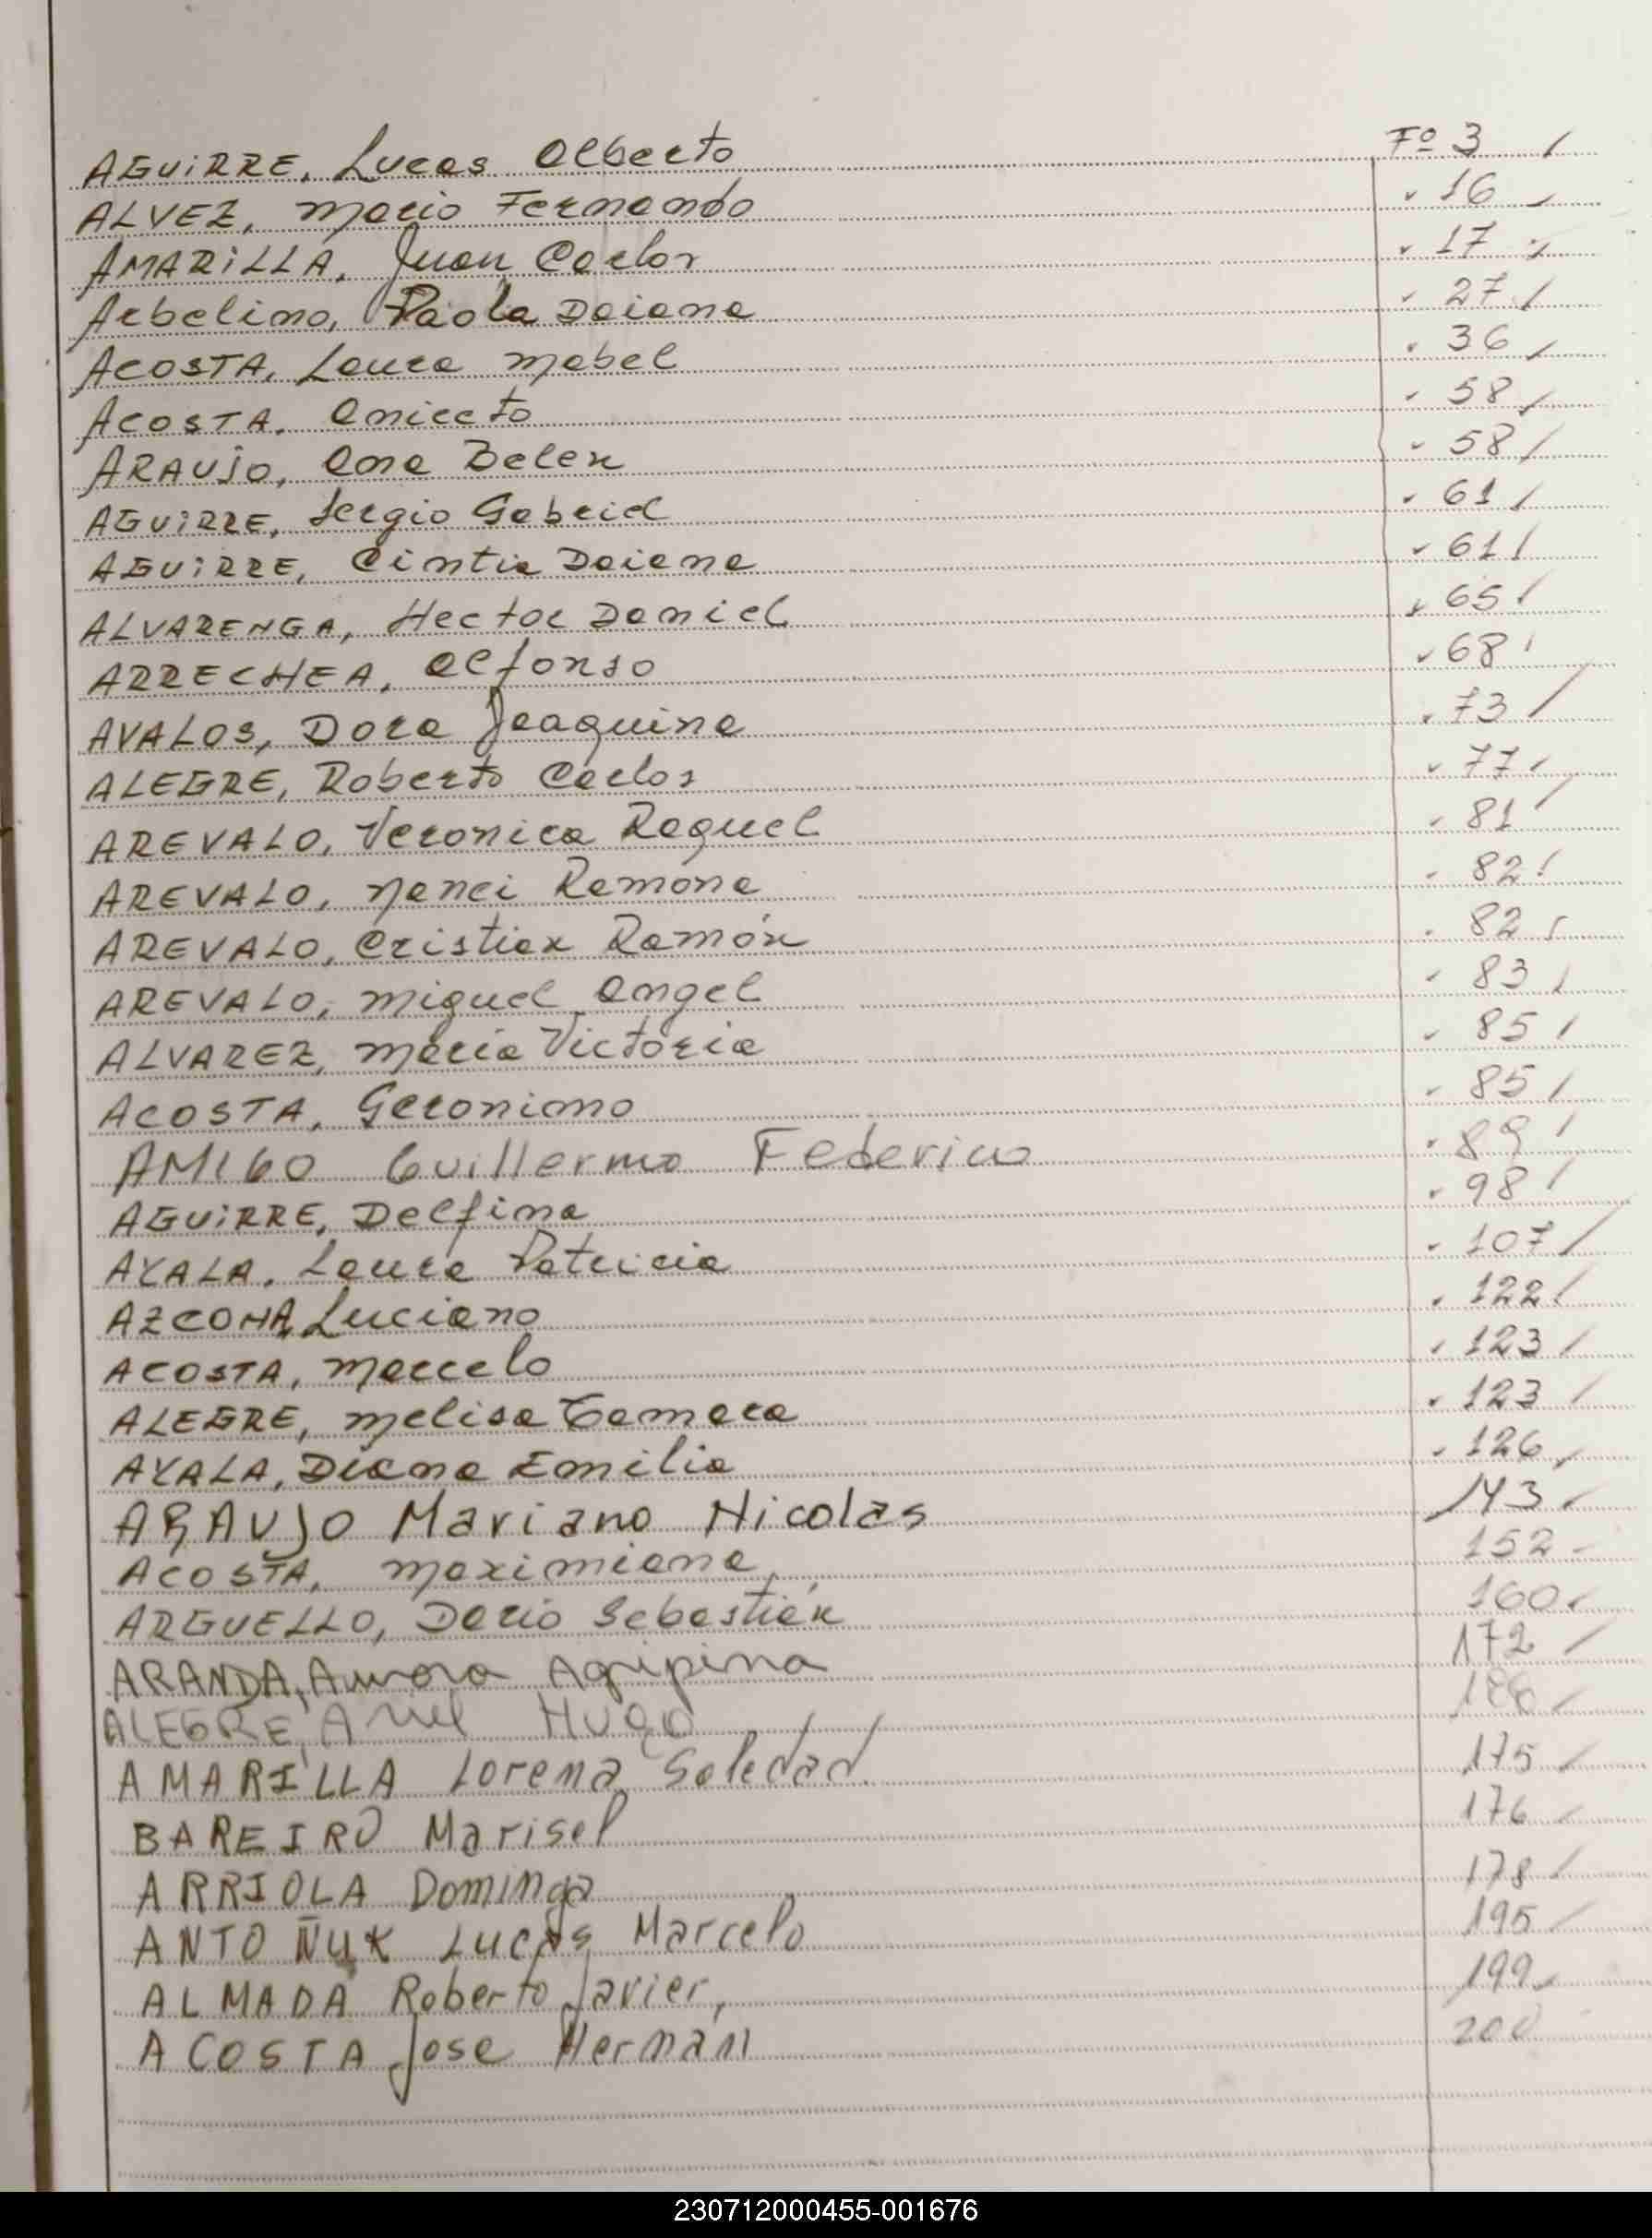 AGUIRRE, Lucas Alberto Fº 3 /
ALVEZ, Mario Fernando " 16
AMARILLA, Juan Carlos " 17
Arbelino, Paola Daiana " 27 /
ACOSTA, Laura Mabel " 36 /
ACOSTA, Aniceto " 58 /
ARAUJO, Ana Belen " 58 /
AGUIRRE, Sergio Gabriel " 61 /
AGUIRRE, Cintia Daiana " 61 /
ALVARENGA, Hector Daniel " 65 /
ARRECHEA, Alfonso " 68 /
AVALOS, Dora Joaquina " 73 /
ALEGRE, Roberto Carlos " 77 /
AREVALO, Veronica Raquel " 81 /
AREVALO, Nanci Ramona " 82 /
AREVALO, Cristian Ramón " 82 /
AREVALO, Miguel Angel " 83 /
ALVAREZ, Maria Victoria " 85 /
ACOSTA, Geronimo " 85 /
AMIGO Guillermo Federico " 89 /
AGUIRRE, Delfina " 98 /
AYALA, Laura Patricia " 107 /
AZCONA, Luciano " 122 /
ACOSTA, Marcelo " 123 /
ALEGRE, Melisa Tamara " 123 /
AYALA, Diana Emilia " 126 /
ARAUJO Mariano Nicolas 143 /
ACOSTA, Maximiana 152 -
ARGUELLO, Dario Sebastián 160 /
ARANDA, Aurora Agripina 172 /
ALEGRE, Ariel Hugo
AMARILLA Lorena Soledad 175 /
BAREIRO Marisel 176 /
ARRIOLA Dominga 178 /
ANTOÑUK Lucas Marcelo 195 /
ALMADA Roberto Javier, 199 /
ACOSTA Jose Hernán 200
230712000455-001676